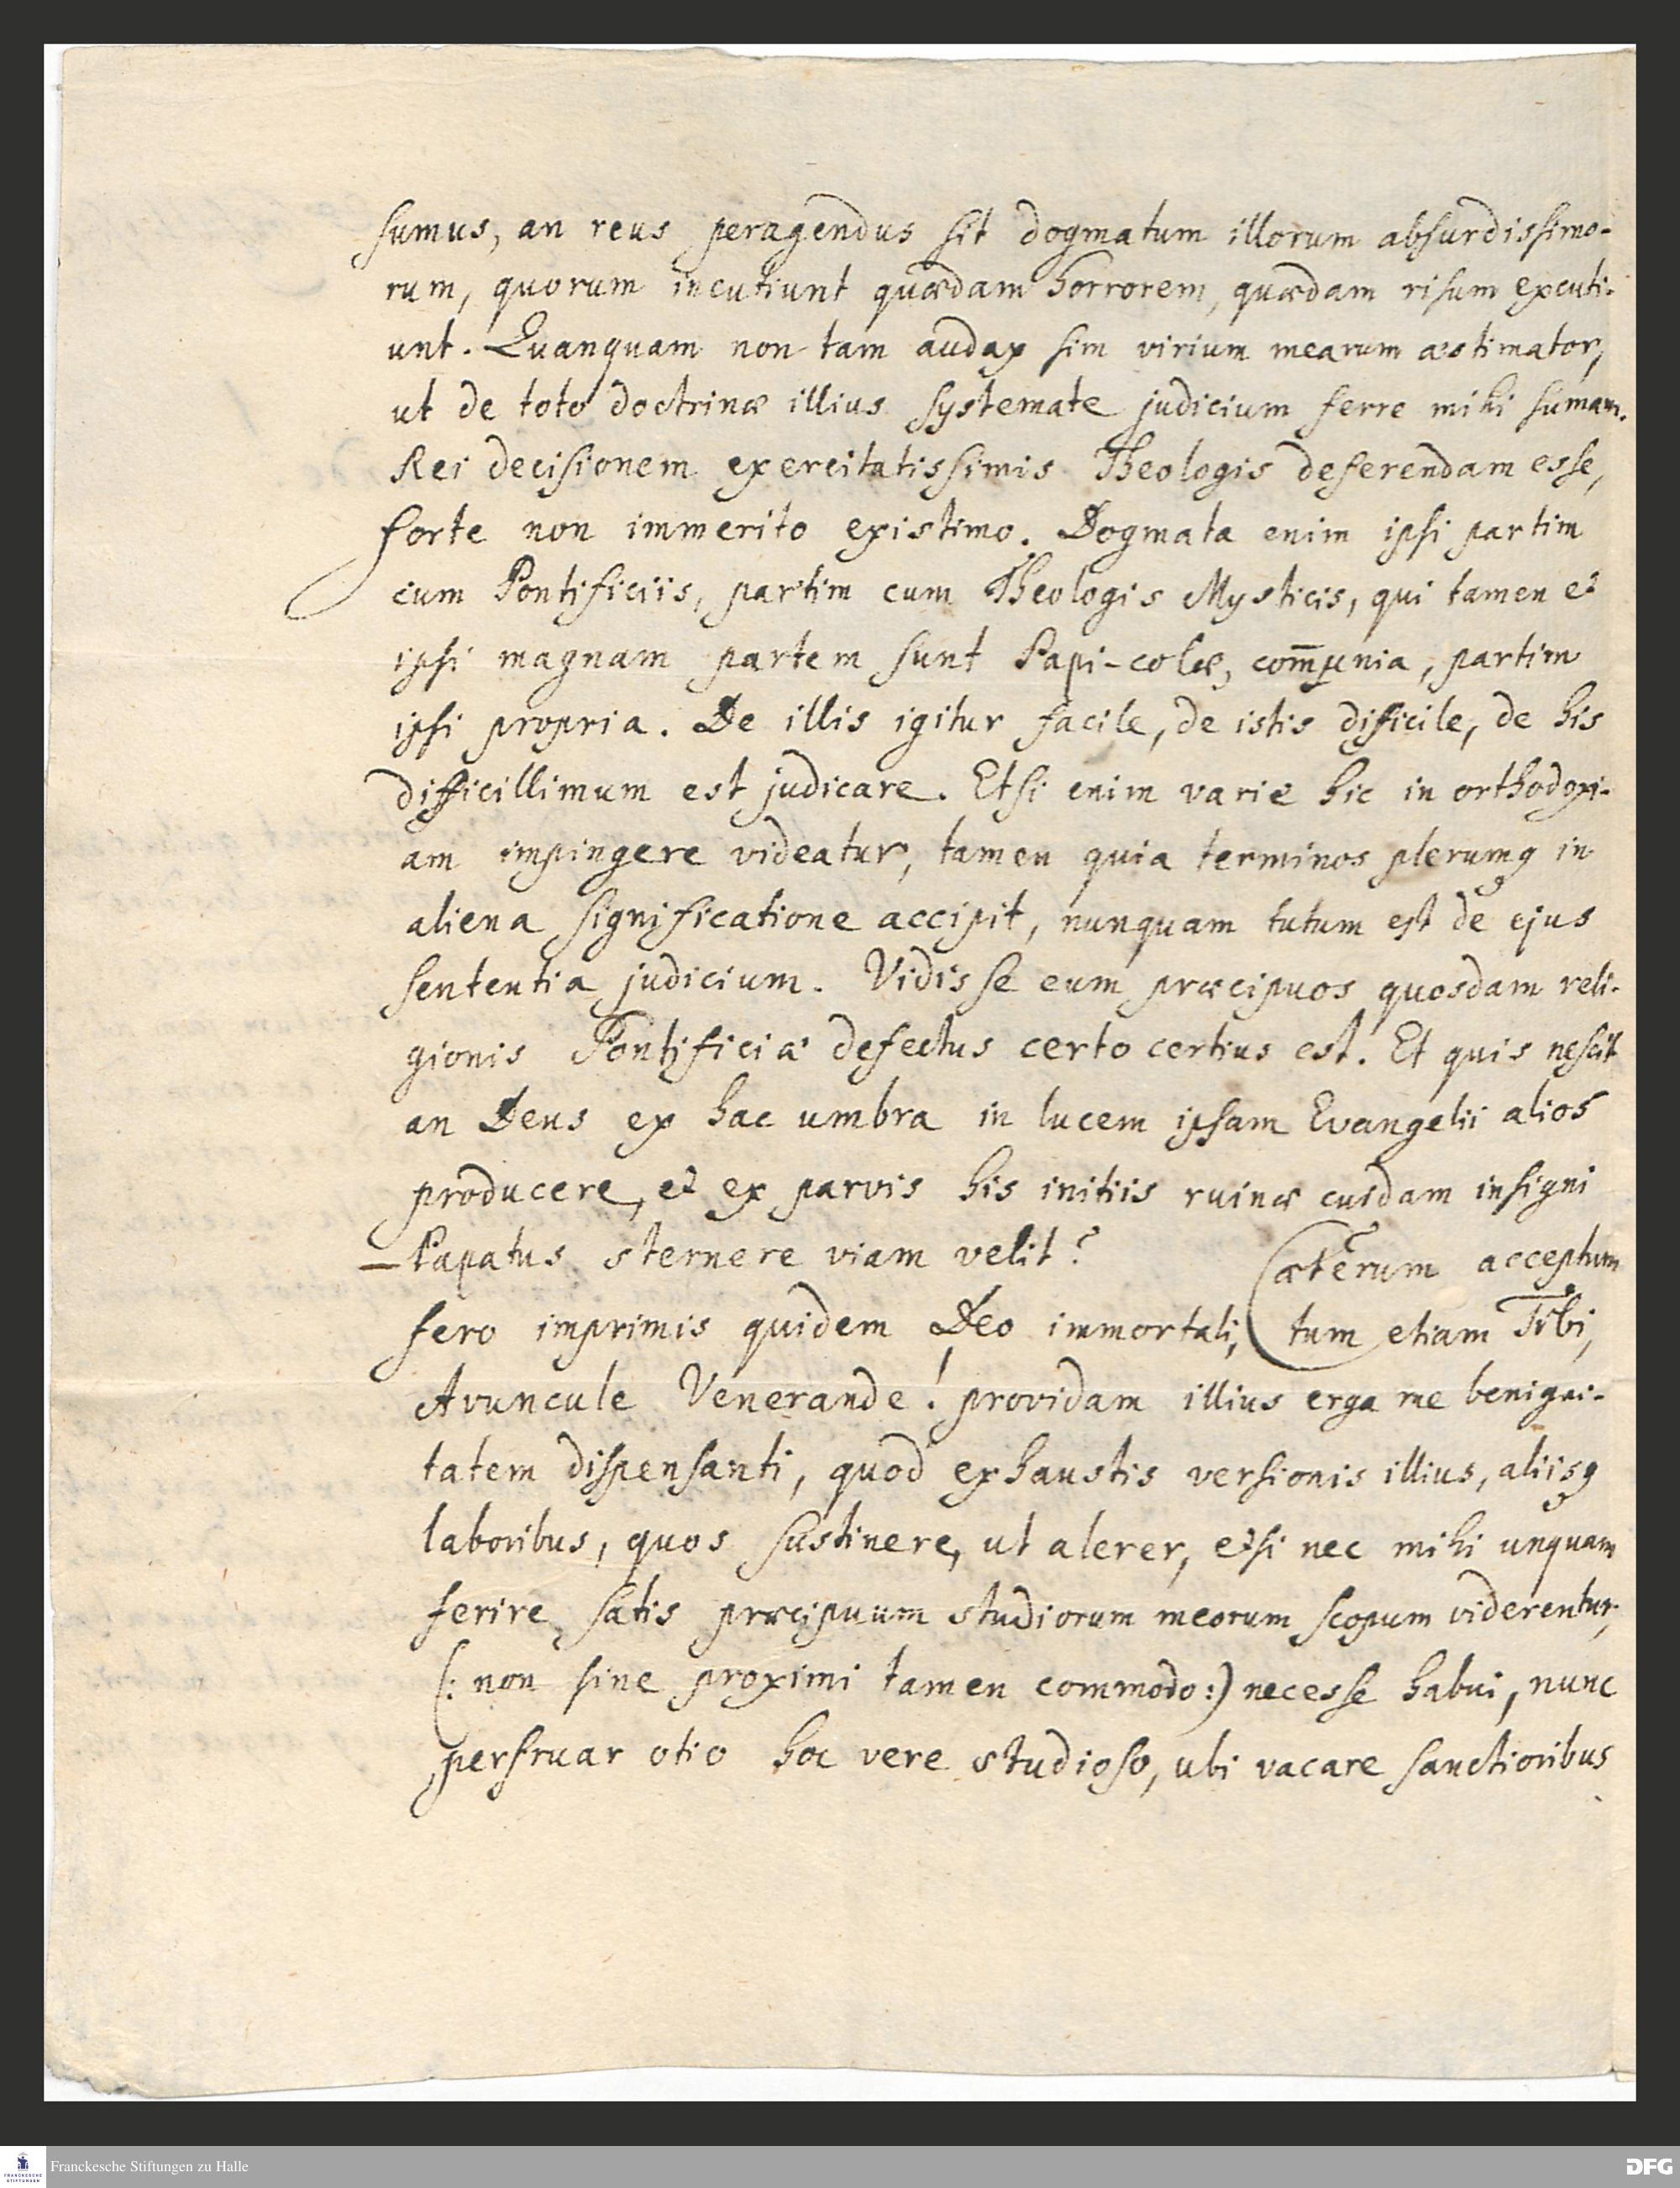 sumus, an reus peragendus sit dogmatum illorum absurdissimo-
rum, quorum incutiunt quædam horrorem, quædam risum excuti-
unt. Quanquam non tam audax sim virium mearum æstimator,
ut de toto doctrinæ illius systemate judicium ferre mihi sumam.
Rei decisionem exercitatissimis Theologis deferendam esse,
forte non immerito existimo. Dogmata enim ipsi partim
cum Pontificiis, partim cum Theologis Mysticis, qui tamen et
ipsi magnam partem sunt Papi-colæ, com̄unia, partim
ipsi propria. De illis igitur facile, de istis difficile, de his
difficillimum est judicare. Etsi enim varie hic in orthodoxi-
am impingere videatur, tamen quia terminos plerumq in
aliena significatione accipit, nunquam tutum est de ejus
sententia judicium. Vidisse eum præcipuos quosdam reli-
gionis Pontificiæ defectus certo certius est. Et quis nescit
an Deus ex hac umbra in lucem ipsam Evangelii alios
producere, et ex parvis his initiis ruinæ cuidam insigni
Papatus sternere viam velit? Cæterum acceptum
fero imprimis quidem Deo immortali, tum etiam Tibi,
Avuncule Venerande! providam illius erga me benigni-
tatem dispensanti, quod exhaustis versionis illius, aliisq
laboribus, quos sustinere, ut alerer, etsi nec mihi unquam
ferire satis præcipuum studiorum meorum scopum viderentur,
(: non sine proximi tamen commodo:) necesse habui, nunc
perfruar otio hoc vere studioso, ubi vacare sanctioribus
Franckesche Stiftungen zu Halle
FRANCKESCHE
STIFTUNGEN
DFG